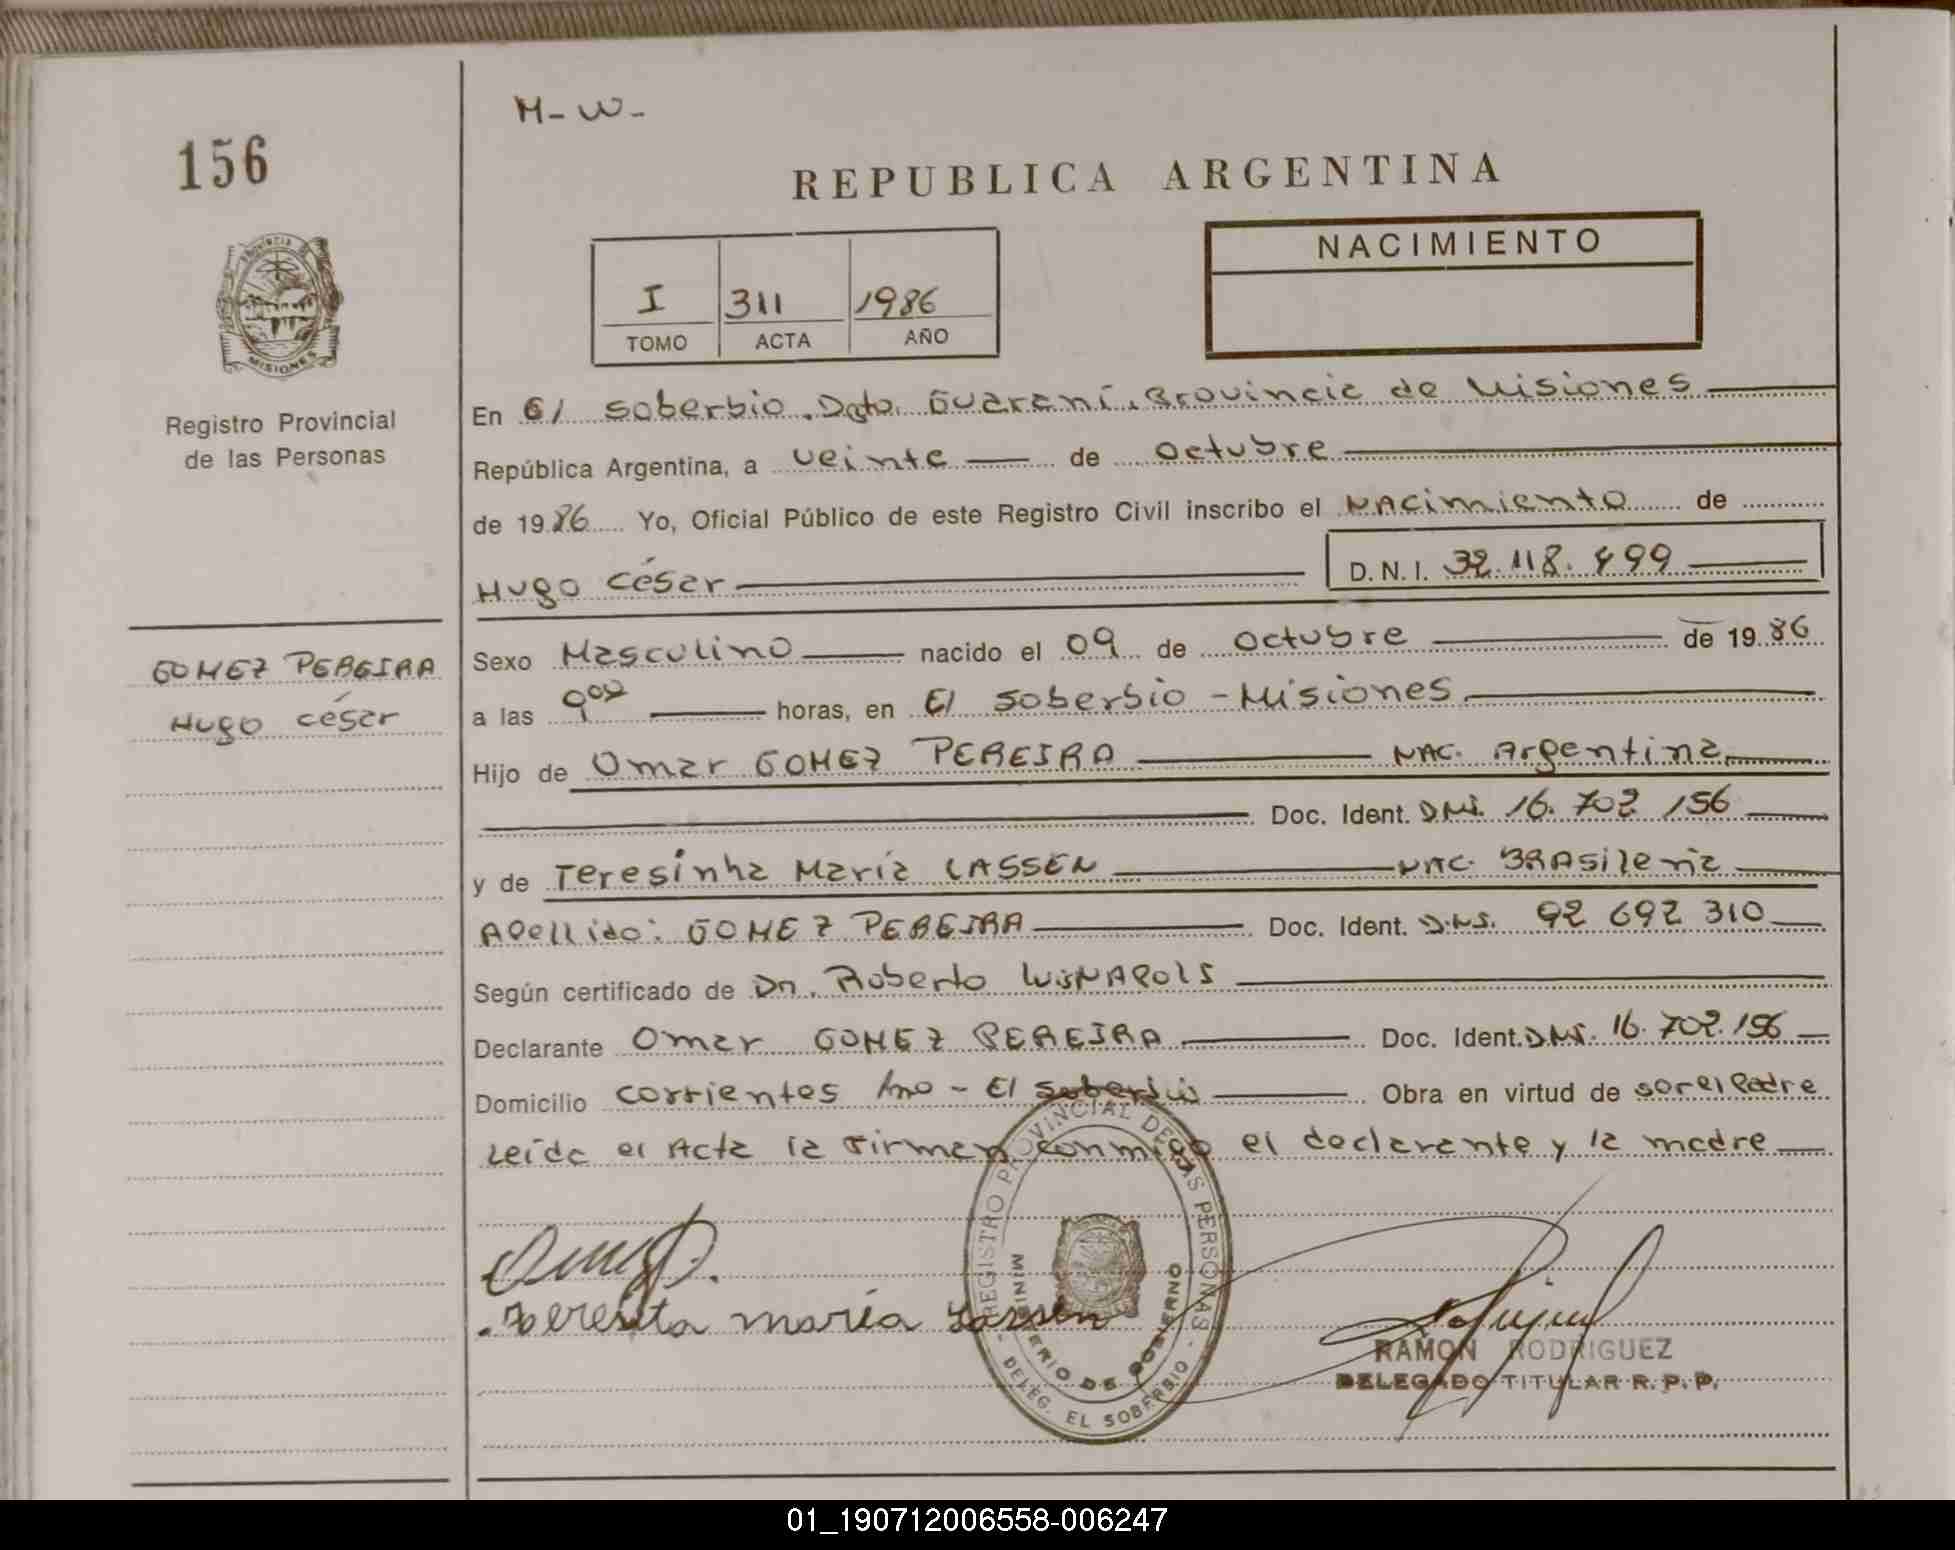 M-W-
156
REPUBLICA ARGENTINA
NACIMIENTO
I 311 1986
TOMO ACTA AÑO
PROVINCIA DE MISIONES
Registro Provincial
de las Personas
En El Soberbio. Dpto. Guaraní. Provincia de Misiones
República Argentina, a veinte de octubre
de 1986 Yo, Oficial Público de este Registro Civil inscribo el NACimiento de
Hugo César D.N.I. 32.118.499
GOMEZ PEREIRA
Hugo César
Sexo Masculino nacido el 09 de octubre de 1986
a las 9 horas, en El Soberbio - Misiones
Hijo de Omar GOMEZ PEREIRA NAC. Argentina
Doc. Ident. DNI. 16.702 156
y de Teresinha María LASSEN NAC. BRAsileña
Apellido: GOMEZ PEREIRA Doc. Ident. DNI. 92 692 310
Según certificado de Dr. Roberto
Declarante Omar GOMEZ PEREIRA Doc. Ident. DNI. 16.702.156
Domicilio corrientes - El Soberbio Obra en virtud de ser el Padre
Leída el Acta la Firman conmigo el declarante y la madre
REGISTRO PROVINCIAL DE LAS PERSONAS
MINISTERIO DE GOBIERNO
DELEG. EL SOBERBIO
Teresita maría Lassen
RAMON RODRIGUEZ
DELEGADO TITULAR R.P.P.
01_190712006558-006247